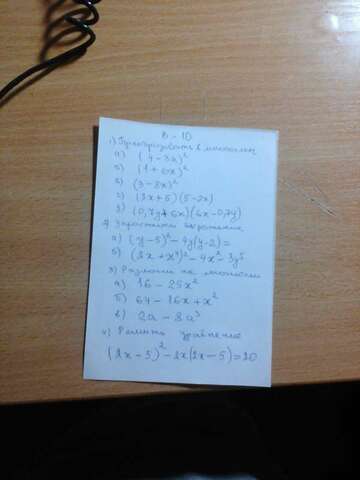 В - 10
1) Преобразовать в многочлен
а) (4-3a)²
б) (1+6x)²
в) (3-8x)²
г) (2x+5)(5-2x)
д) (0,7y+6x)(6x-0,7y)
2) Упростить выражение
а) (y-5)²-4y(y-2)=
б) (2x+x⁴)²-4x²-3y⁵
3) Разложи на множители
а) 16-25x²
б) 64-16x+x²
в) 2a-8a³
4) Решить уравнение
(2x-5)²-2x(2x-5)=20